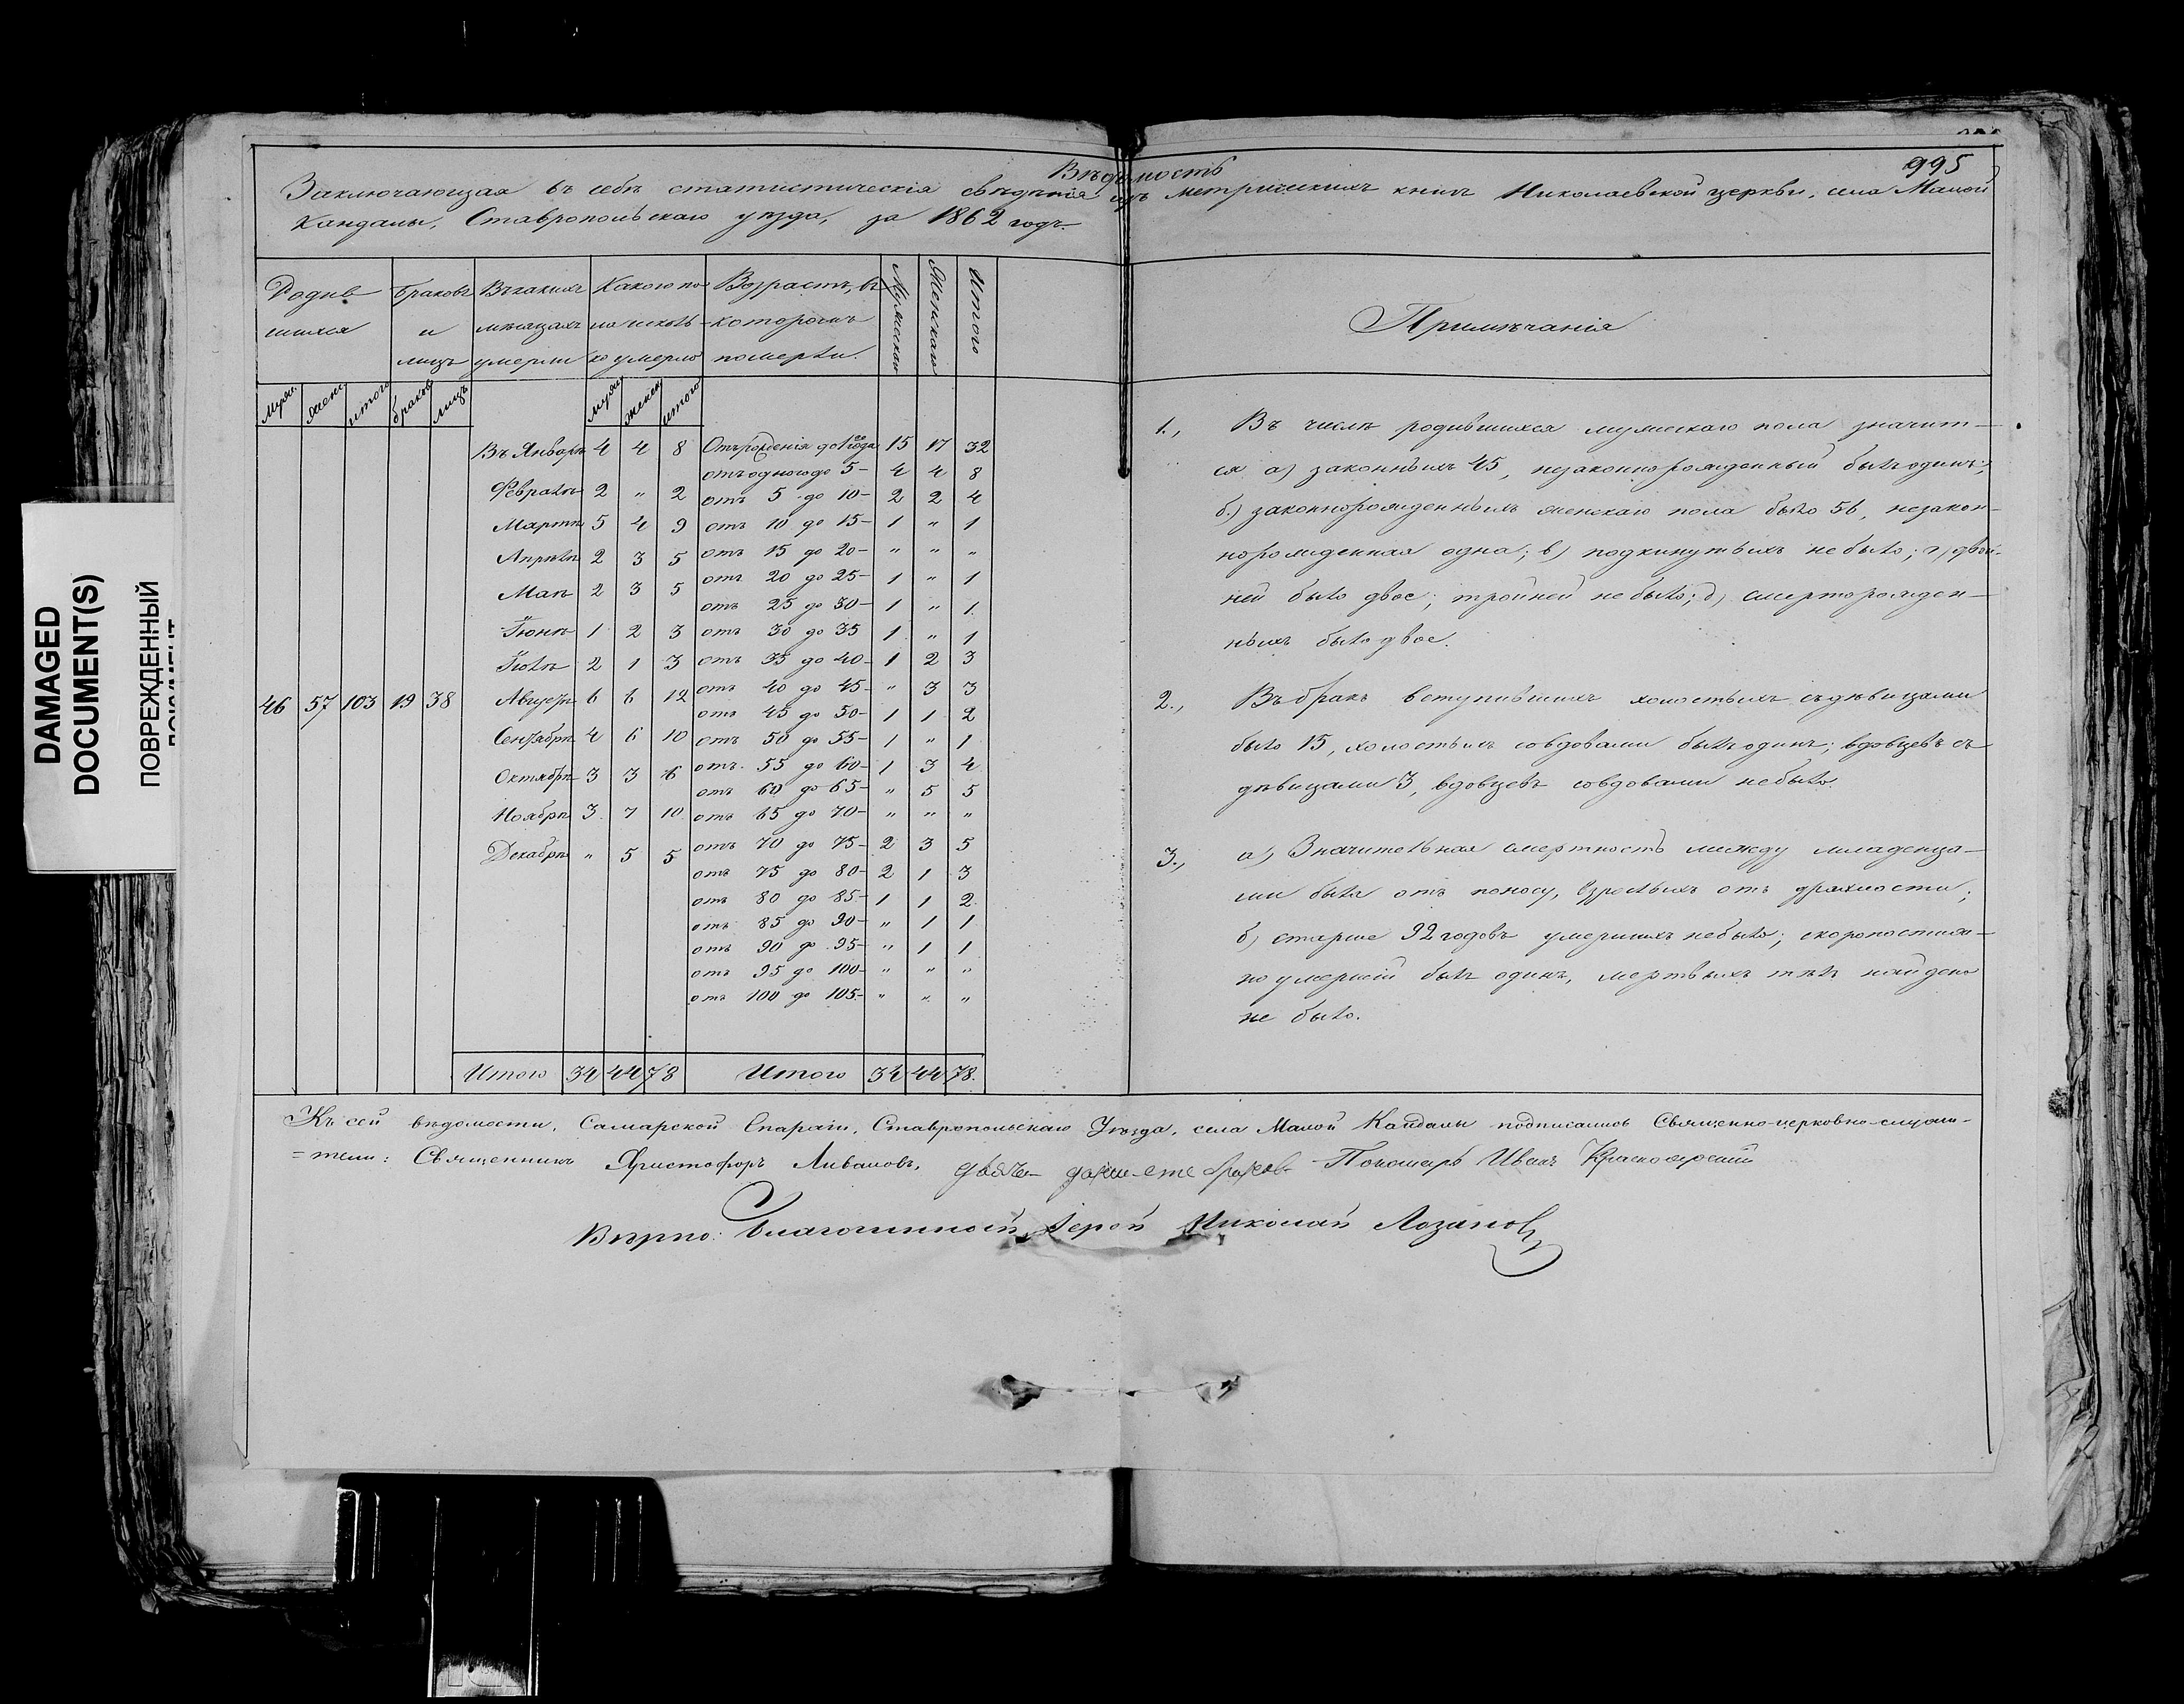 995
Вѣдомость
Заключающая въ себѣ статистическія свѣдѣнія изъ метрическихъ книгъ Николаевской церкви, села Малой
Кандалы, Ставропольскаго уѣзда, за 1862 годъ.
Родив Браковъ Въ какихъ Какого по Возрастъ, въ Мужскаго Женскаго Итого
шихся и мѣсяцахъ ла сколь- которомъ
лицъ умерли ко умерло померли.
Примѣчанія
Муж. Жен. итого браковъ лицъ муж. женск. итого
Въ Январѣ 4 4 8
Февралѣ 2 „ 2
Мартѣ 5 4 9
Апрѣлѣ 2 3 5
Маѣ 2 3 5
Іюнѣ 1 2 3
Іюлѣ 2 1 3
46 57 103 19 38 Августѣ 6 6 12
Сентябрѣ 4 6 10
Октябрѣ 3 3 6
Ноябрѣ 3 7 10
Декабрѣ „ 5 5
Итого 34 44 78
Отъ рожденія до 1го года 15 17 32
отъ одного до 5- 4 4 8
отъ 5 до 10- 2 2 4
отъ 10 до 15- 1 „ 1
отъ 15 до 20- „ „ „
отъ 20 до 25- 1 „ 1
отъ 25 до 30- 1 „ 1
отъ 30 до 35 1 „ 1
отъ 35 до 40- 1 2 3
отъ 40 до 45- „ 3 3
отъ 45 до 50- 1 1 2
отъ 50 до 55- 1 „ 1
отъ 55 до 60- 1 3 4
отъ 60 до 65- „ 5 5
отъ 65 до 70- „ „ „
отъ 70 до 75- 2 3 5
отъ 75 до 80- 2 1 3
отъ 80 до 85- 1 1 2
отъ 85 до 90- „ 1 1
отъ 90 до 95- „ 1 1
отъ 95 до 100- „ „ „
отъ 100 до 105- „ „ „
Итого 34 44 78.
1., Въ числѣ родившихся мужескаго пола значит-
ся а) законныхъ 45, незаконнорожденный былъ одинъ;
б.) законнорожденныхъ женскаго пола было 56, незакон-
норожденная одна; в) подкинутыхъ не было; г) двой-
ней было двое; тройней не было; д) смерторожден-
ныхъ было двое.
2., Въ бракъ вступившихъ холостыхъ съ дѣвицами
было 15, холостыхъ со вдовами былъ одинъ; вдовцевъ съ
дѣвицами 3, вдовцевъ со вдовами не было.
3., а) Значительная смертность между младенца-
ми была отъ поносу, взрослыхъ отъ дряхлости;
б) старше 92 годовъ умершихъ не было; скоропостиж-
но умерший былъ одинъ, мертвыхъ тѣлъ найдено
не было.
Къ сей вѣдомости, Самарской Епархіи, Ставропольскаго Уѣзда, села Малой Кандалы подписались Священно-церковно-служи-
=тели: Священникъ Христофоръ Ливановъ, Пономарь Иванъ Красноярскій
Вѣрно: Благочинный Іерей Николай Лозановъ
DAMAGED
DOCUMENT(S)
ПОВРЕЖДЕННЫЙ